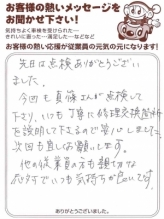 お客様の熱いメッセージを
お聞かせ下さい!
気持ちよく車検を受けられた…
きれいに直った…満足した…などなど
お客様の熱い応援が従業員の元気の元になります!
先日は点検ありがとうござい
ました。
今回も真篠さんが点検して
下さり、いつも丁寧に修理交換箇所
を説明して下さるので安心しました。
次回も宜しくお願いします。
他の従業員の方も親切な
方々でいつも気持ちが良いです。
ありがとうございました。